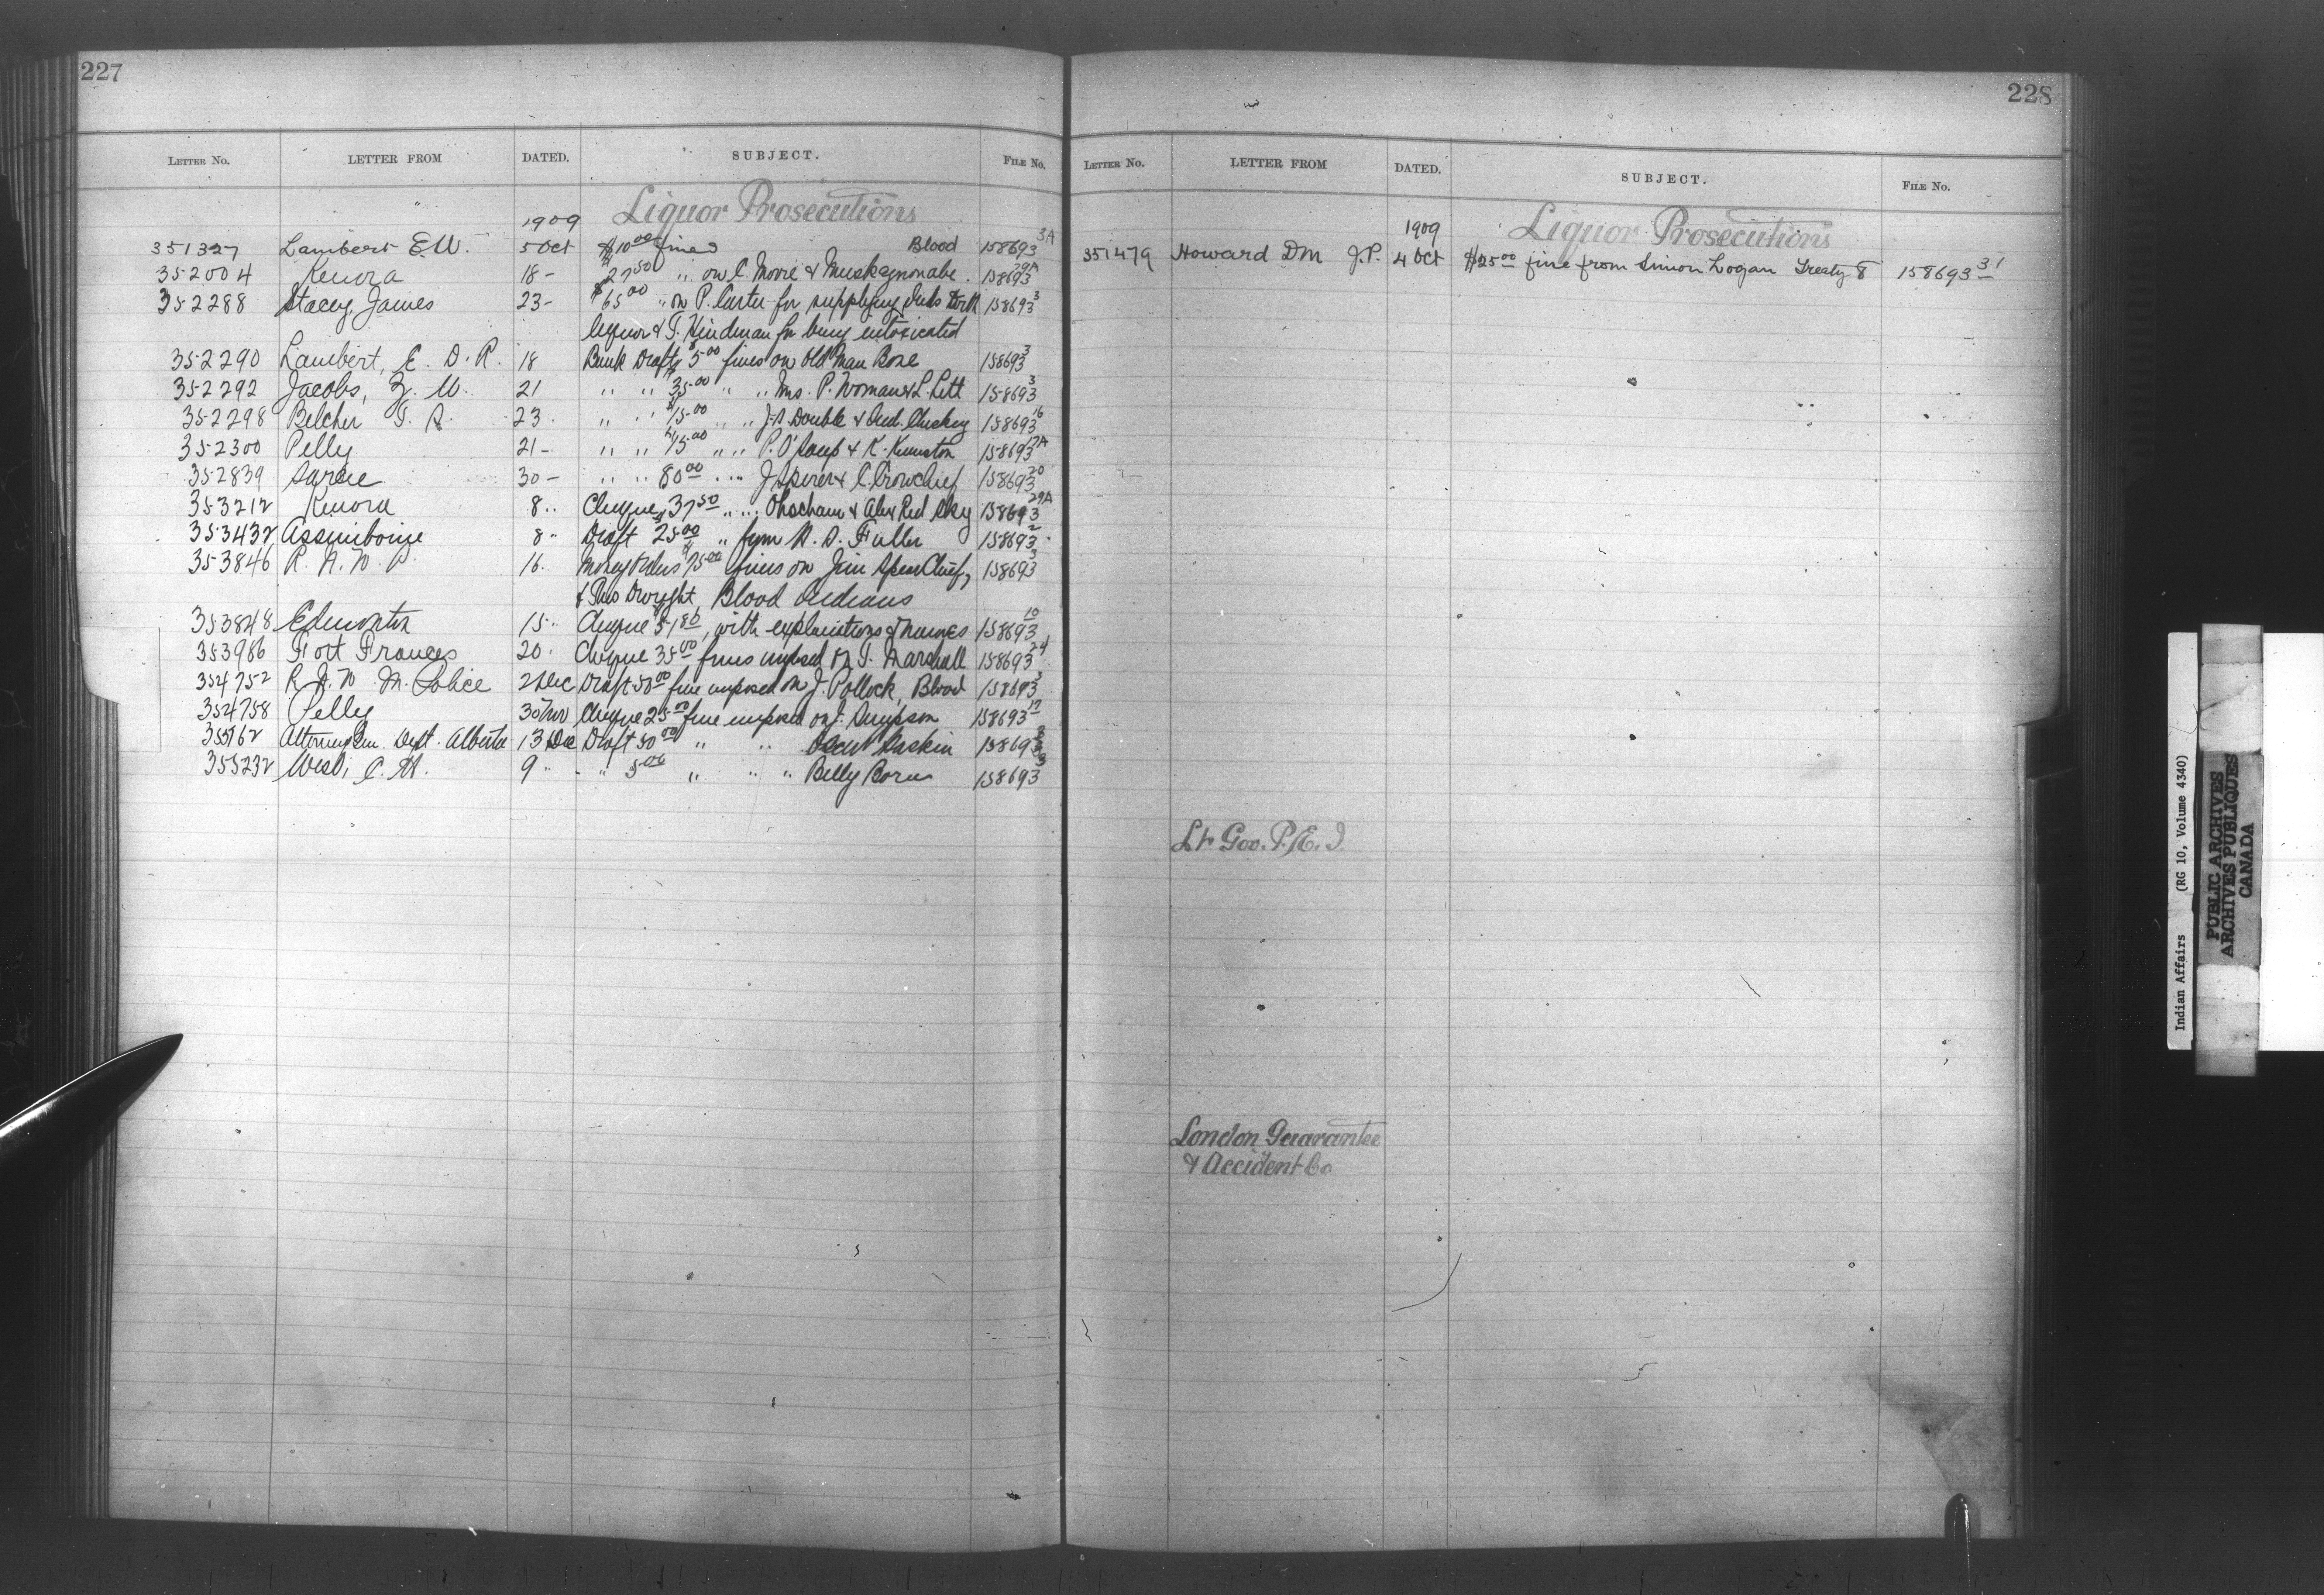 227
LETTER No. LETTER FROM DATED. SUBJECT. FILE No.
1909 Liquor Prosecutions
351327 Lambert E.W. 5 Oct $10.00 fines Blood 158693 3A
352004 Kenora 18 - $27.50 " on C. Moore & Muskegnonabe. 158693 29A
352288 Stacey, James 23 - $65.00 " on P. Carter for supplying Inds with 158693 3
liquor & T. Hindman for being intoxicated
352290 Lambert, E. D. R. 18 Bank Draft $5.00 fines on Old Man Bone 158693 3
352292 Jacobs, Z. W. 21 " " 35.00 " " Mrs. P. Woman & L. Lett 158693 3
352298 Belcher T. A. 23 " " $15.00 " " J.A. Double & And. Cluskey 158693 16
352300 Pelly 21 - " " $15.00 " " P. O'Soup & K. 158693 17A
352839 Sarcee 30 - " " 80.00 " " J. Spirer & C. Crowchief 158693 20
353212 Kenora 8 " Cheque 37.50 " " & Alex Red Sky 158693 29A
353432 Assiniboine 8 " Draft 25.00 " from A. D. Fuller 158693 2
353846 R. N. W. P 16. Money Orders 75.00 fines on Jim Spear Chief,
158693 3
& Dwyght, Blood Indians
353848 Edmonton 15 " Cheque 51.80, with explanations of names. 158693 10
353986 Fort Frances 20 " Cheque 35.00 fines imposed on T. Marshall 158693 24
354752 R. N. W. M. Police 2 Dec Draft 50.00 fine imposed on J. Pollock, Blood 158693 3
354758 Pelly 30 Nov Cheque 25.00 fine imposed on J. Simpson 158693 17
355162 Attorney Gen. Dept. Alberta 13 Dec Draft 50.00 " " Oscar Gaskin 158693 3
355232 West, C. H. 9 " " 5.00 " " " Belly Born 158693 3
228
LETTER No. LETTER FROM DATED. SUBJECT. FILE No.
1909 Liquor Prosecutions
351479 Howard D M J.P. 4 Oct $25.00 fine from Simon Logan Treaty 8 158693 31
Lt Gov. P. E. I.
London Guarantee
& Accident Co
Indian Affairs (RG 10, Volume 4340)
PUBLIC ARCHIVES
ARCHIVES PUBLIQUES
CANADA